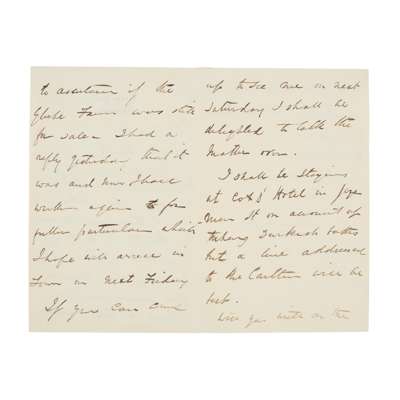 to ascertain if the
Globe Farm was still
for sale. I had a
reply yesterday that it
was and now I have
written again to for
further particulars which
I hope will arrive in
Town on next Friday
If you can come
up to see me on next
Saturday I shall be
delighted to talk the
matter over.
I shall be staying
at Cox's Hotel in
St on account of
taking Turkish baths
but a line addressed
to the Carlton will be
best.
you with on the